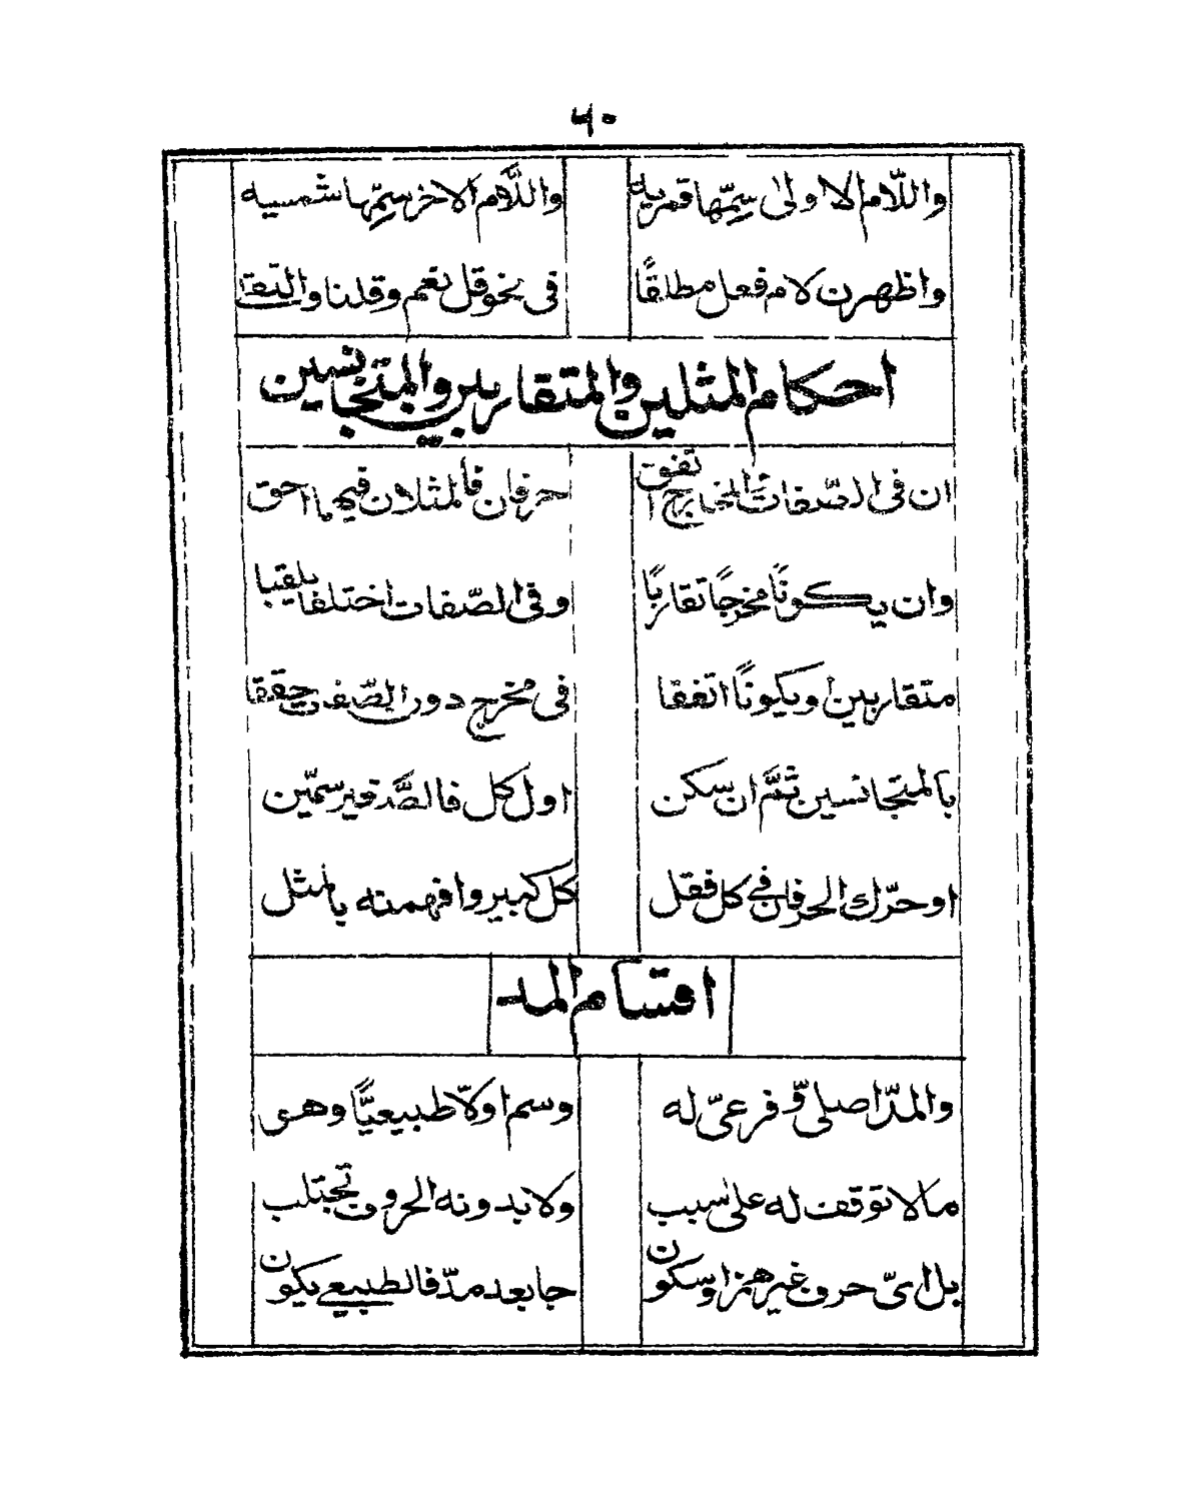 ٦٠
واللّام الاولى سمّها قمريه واللَّام الاخر سمّها شمسيه
واظهرن لام فعل مطلقًا فى نحو قل نعم وقلنا والتقى
احكام المثلين والمتقاربين والمتجانسين
ان فى الصّفات والمخارج اتفق حرفان فالمثلان فيهما احق
وان يكونا مخرجًا تقاربًا وفى الصّفات اختلفا يلقبا
متقاربين او يكونا اتفقا فى مخرج دون الصّفات حققا
بالمتجانسين ثمَّ ان سكن اول كل فالصَّغير سمّين
او حرّك الحرفان فى كل فقل كل كبير وافهمنه بالمثل
اقسام المد
والمدّ اصلىّ وفرعىّ له وسم اولًا طبيعيًّا وهى
مالا توقف له على سبب ولا بدونه الحروف تجتلب
بل اىّ حرف غير همز او سكون جا بعد مدّ فالطبيعى يكون